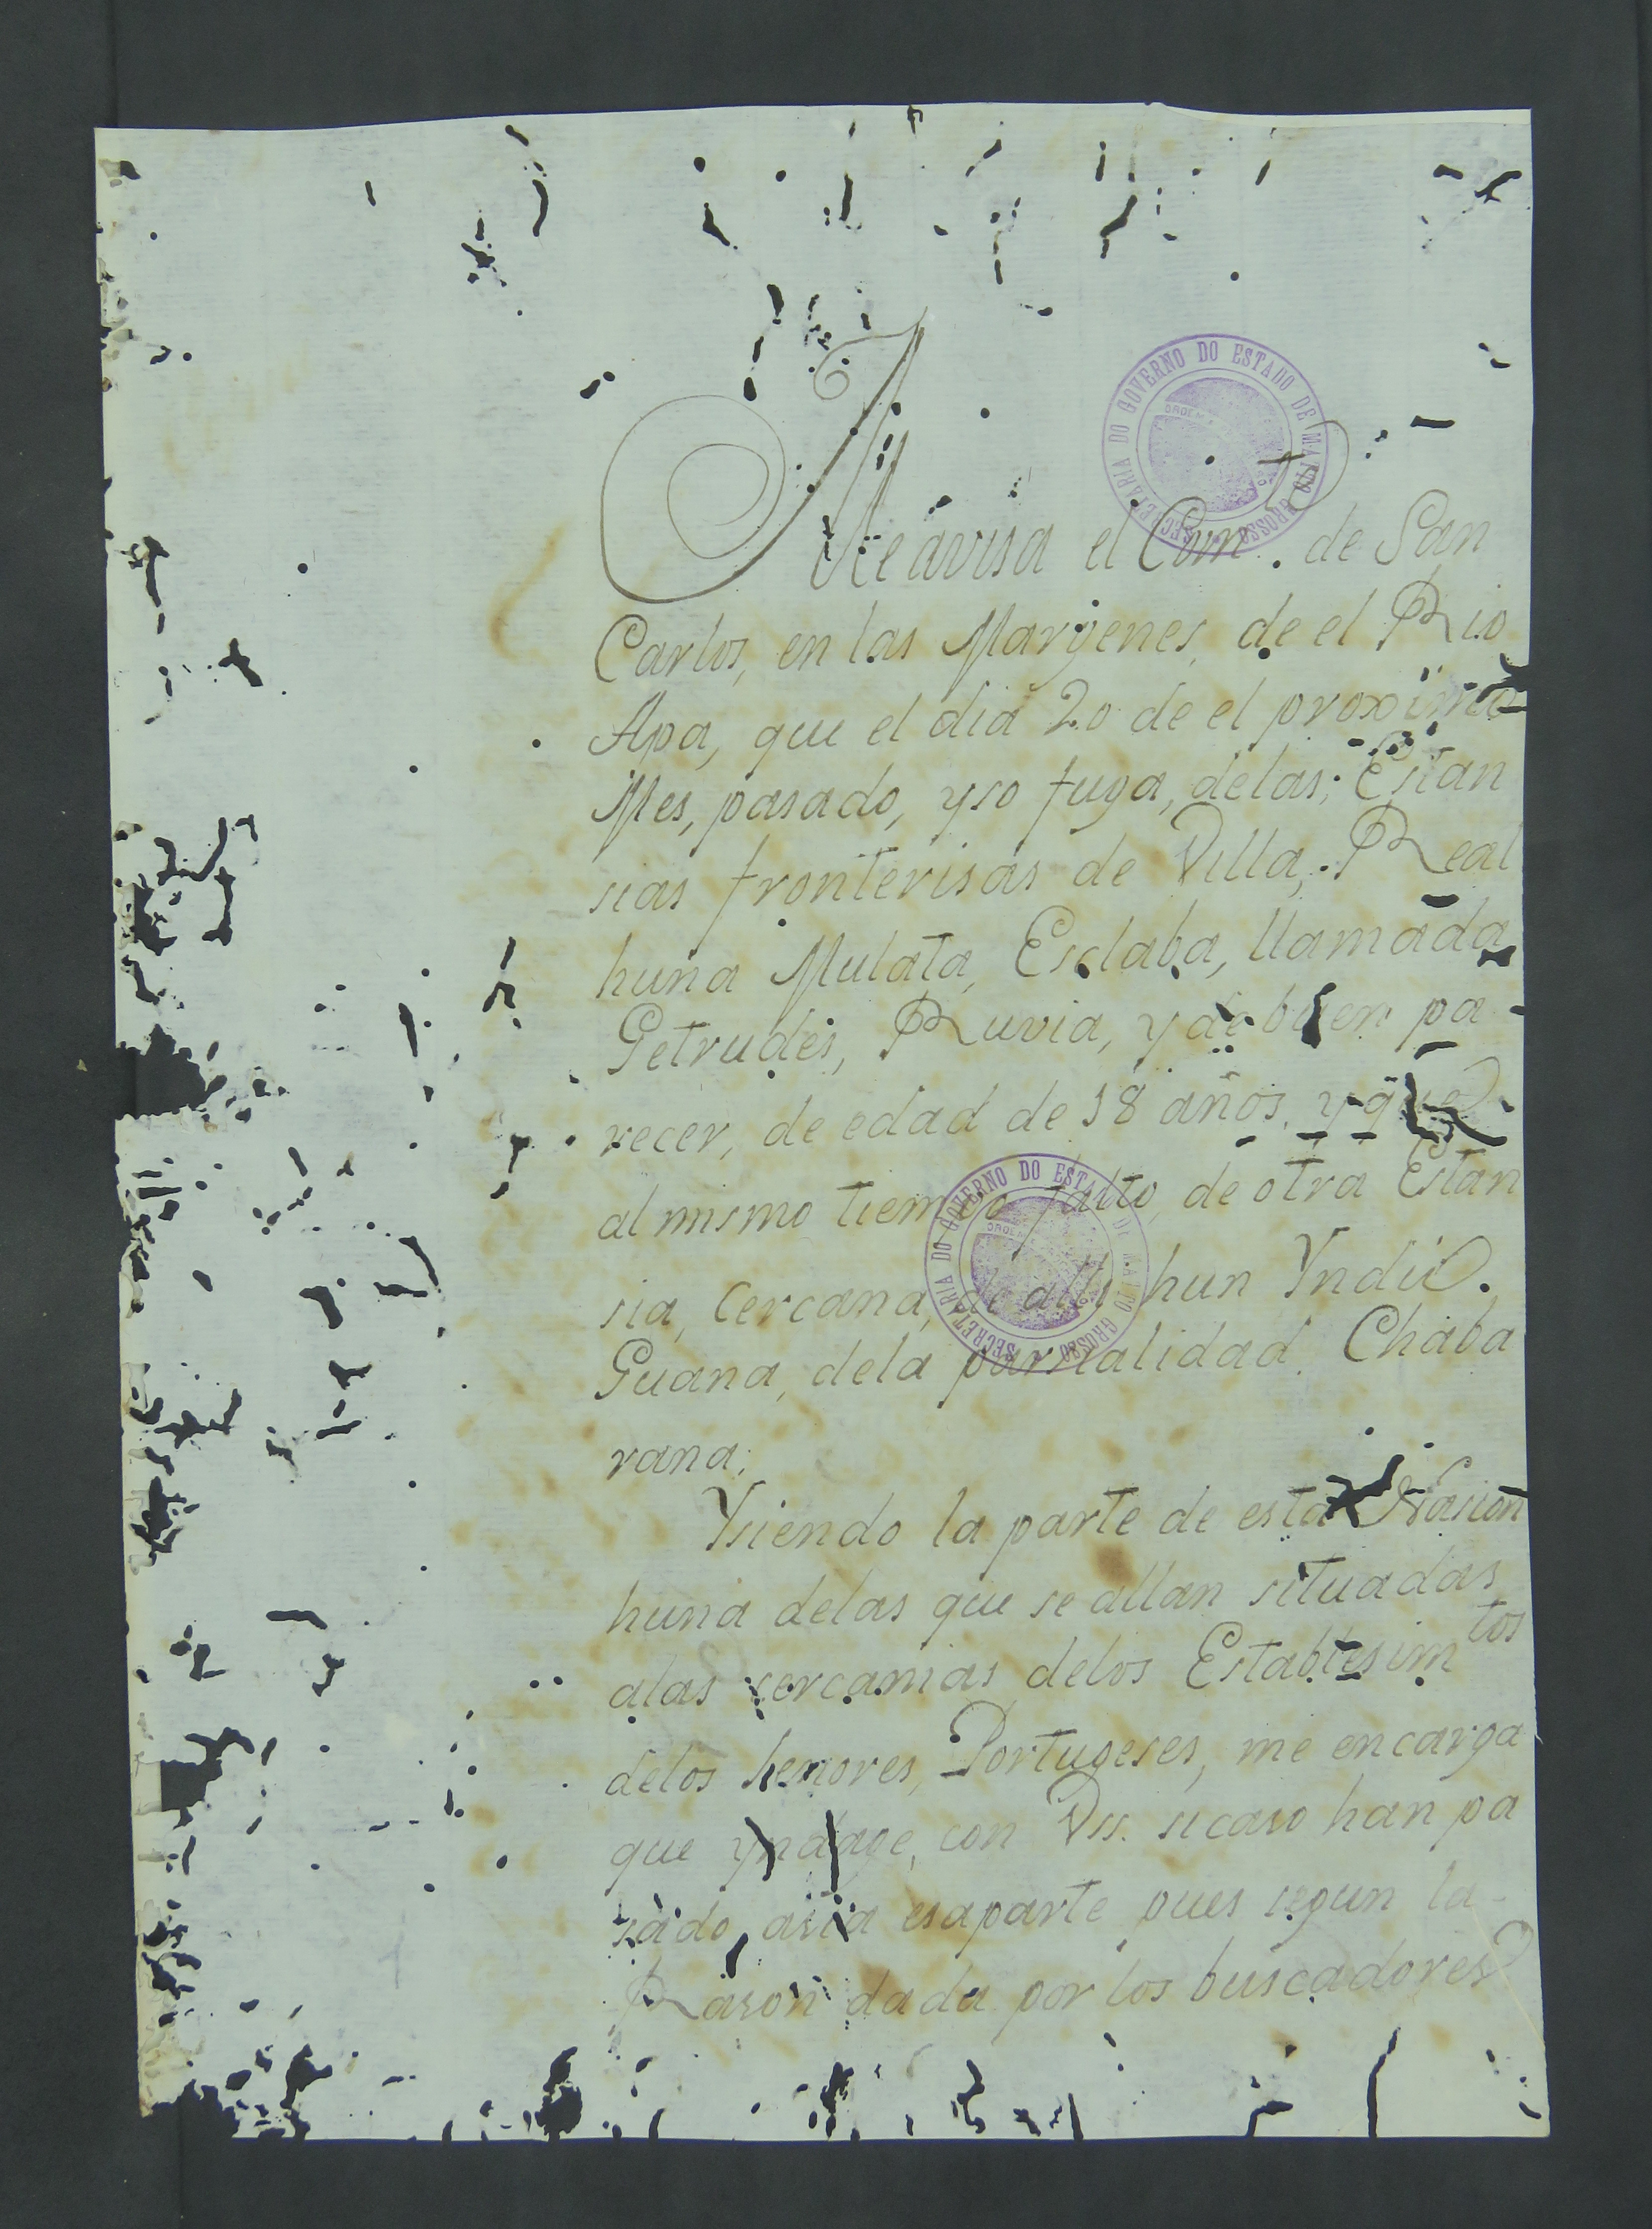 Me avisa el Com.te de San
Carlos, en las Margenes, de el Rio
Apa, que el dia 20 de el proximo
Mes, pasado, yso fuga, delas, Estan
sias fronterisas de Villa, Real
huna Mulata, Esclaba, llamada
Getrudes, Ruvia, y de buen pa-
recer, de edad de 18 años, y que
al mismo tiempo falto, de otra Estan
sia, Cercana, de alli hun Yndio.
Guana, dela parsialidad. Chaba
rana;
Ysiendo la parte de esta Nasion
huna delas que se allan situadas
alas sercanias delos Establesimtos
delos senores, Portugeses, me encarga
que yndage, con Vss. sicaso han pa
sado, asia esaparte pues segun la-
Rason dada por los buscadores
SECRETARIA DO GOVERNO DO ESTADO DE MATTO GROSSO
SECRETARIA DO GOVERNO DO ESTADO DE MATTO GROSSO